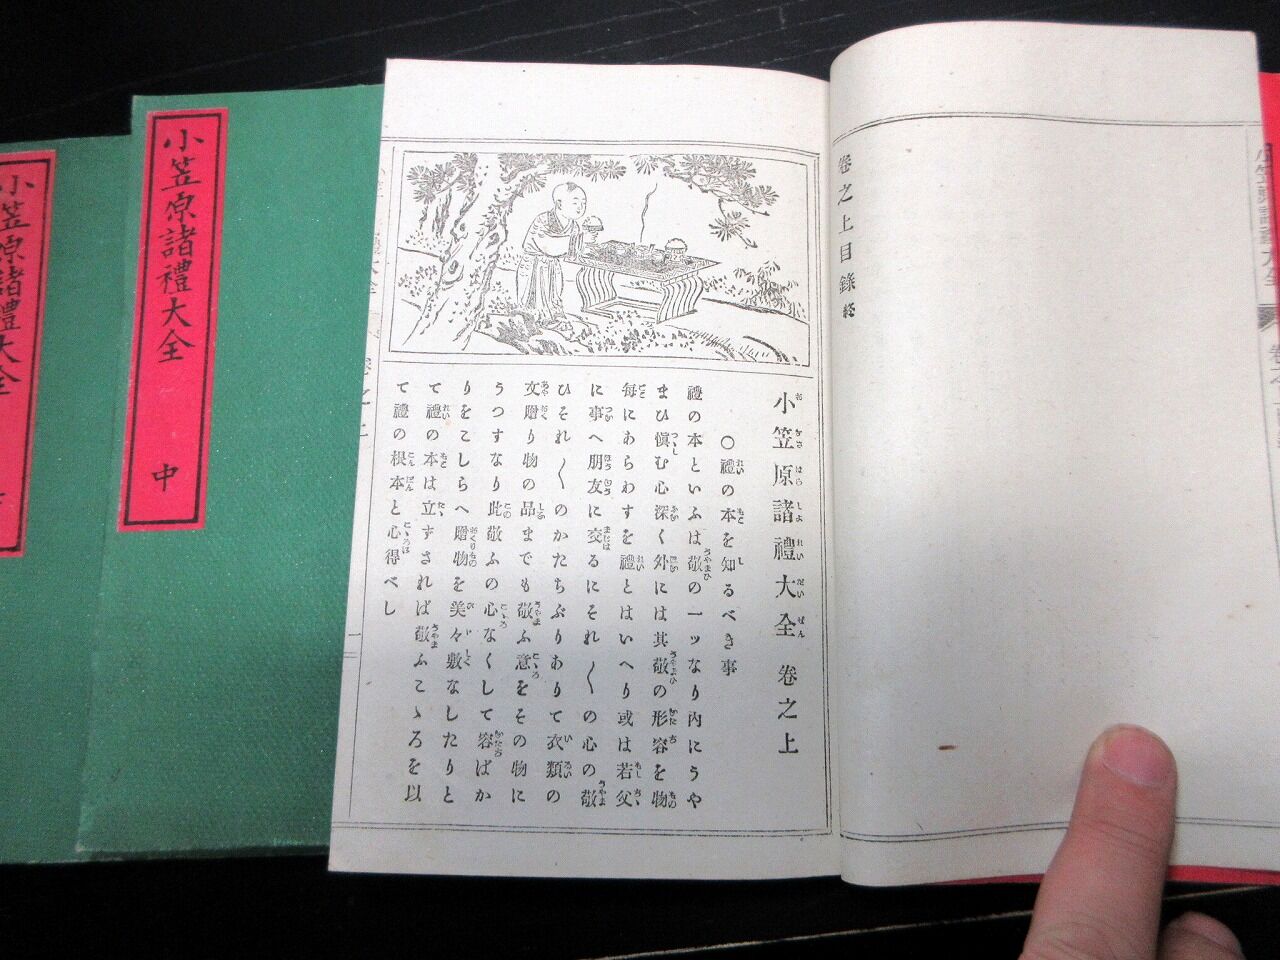 卷之上目錄終
小笠原諸禮大全卷之上
○禮の本を知るべき事
禮の本といふは敬の一ッなり内にうや
まひ愼む心深く外には其敬の形容を物
每にあらわすを禮とはいへり或は若父
に事へ朋友に交るにそれ〱の心の敬
ひそれ〱のかたちぶりありて衣類の
文贈り物の品までも敬ふ意をその物に
うつすなり此敬ふの心なくして容ばか
りをこしらへ贈物を美々敷なしたりと
て禮の本は立ずされば敬ふこゝろを以
て禮の根本と心得べし
小笠原諸禮大全
中
小笠原諸禮大全